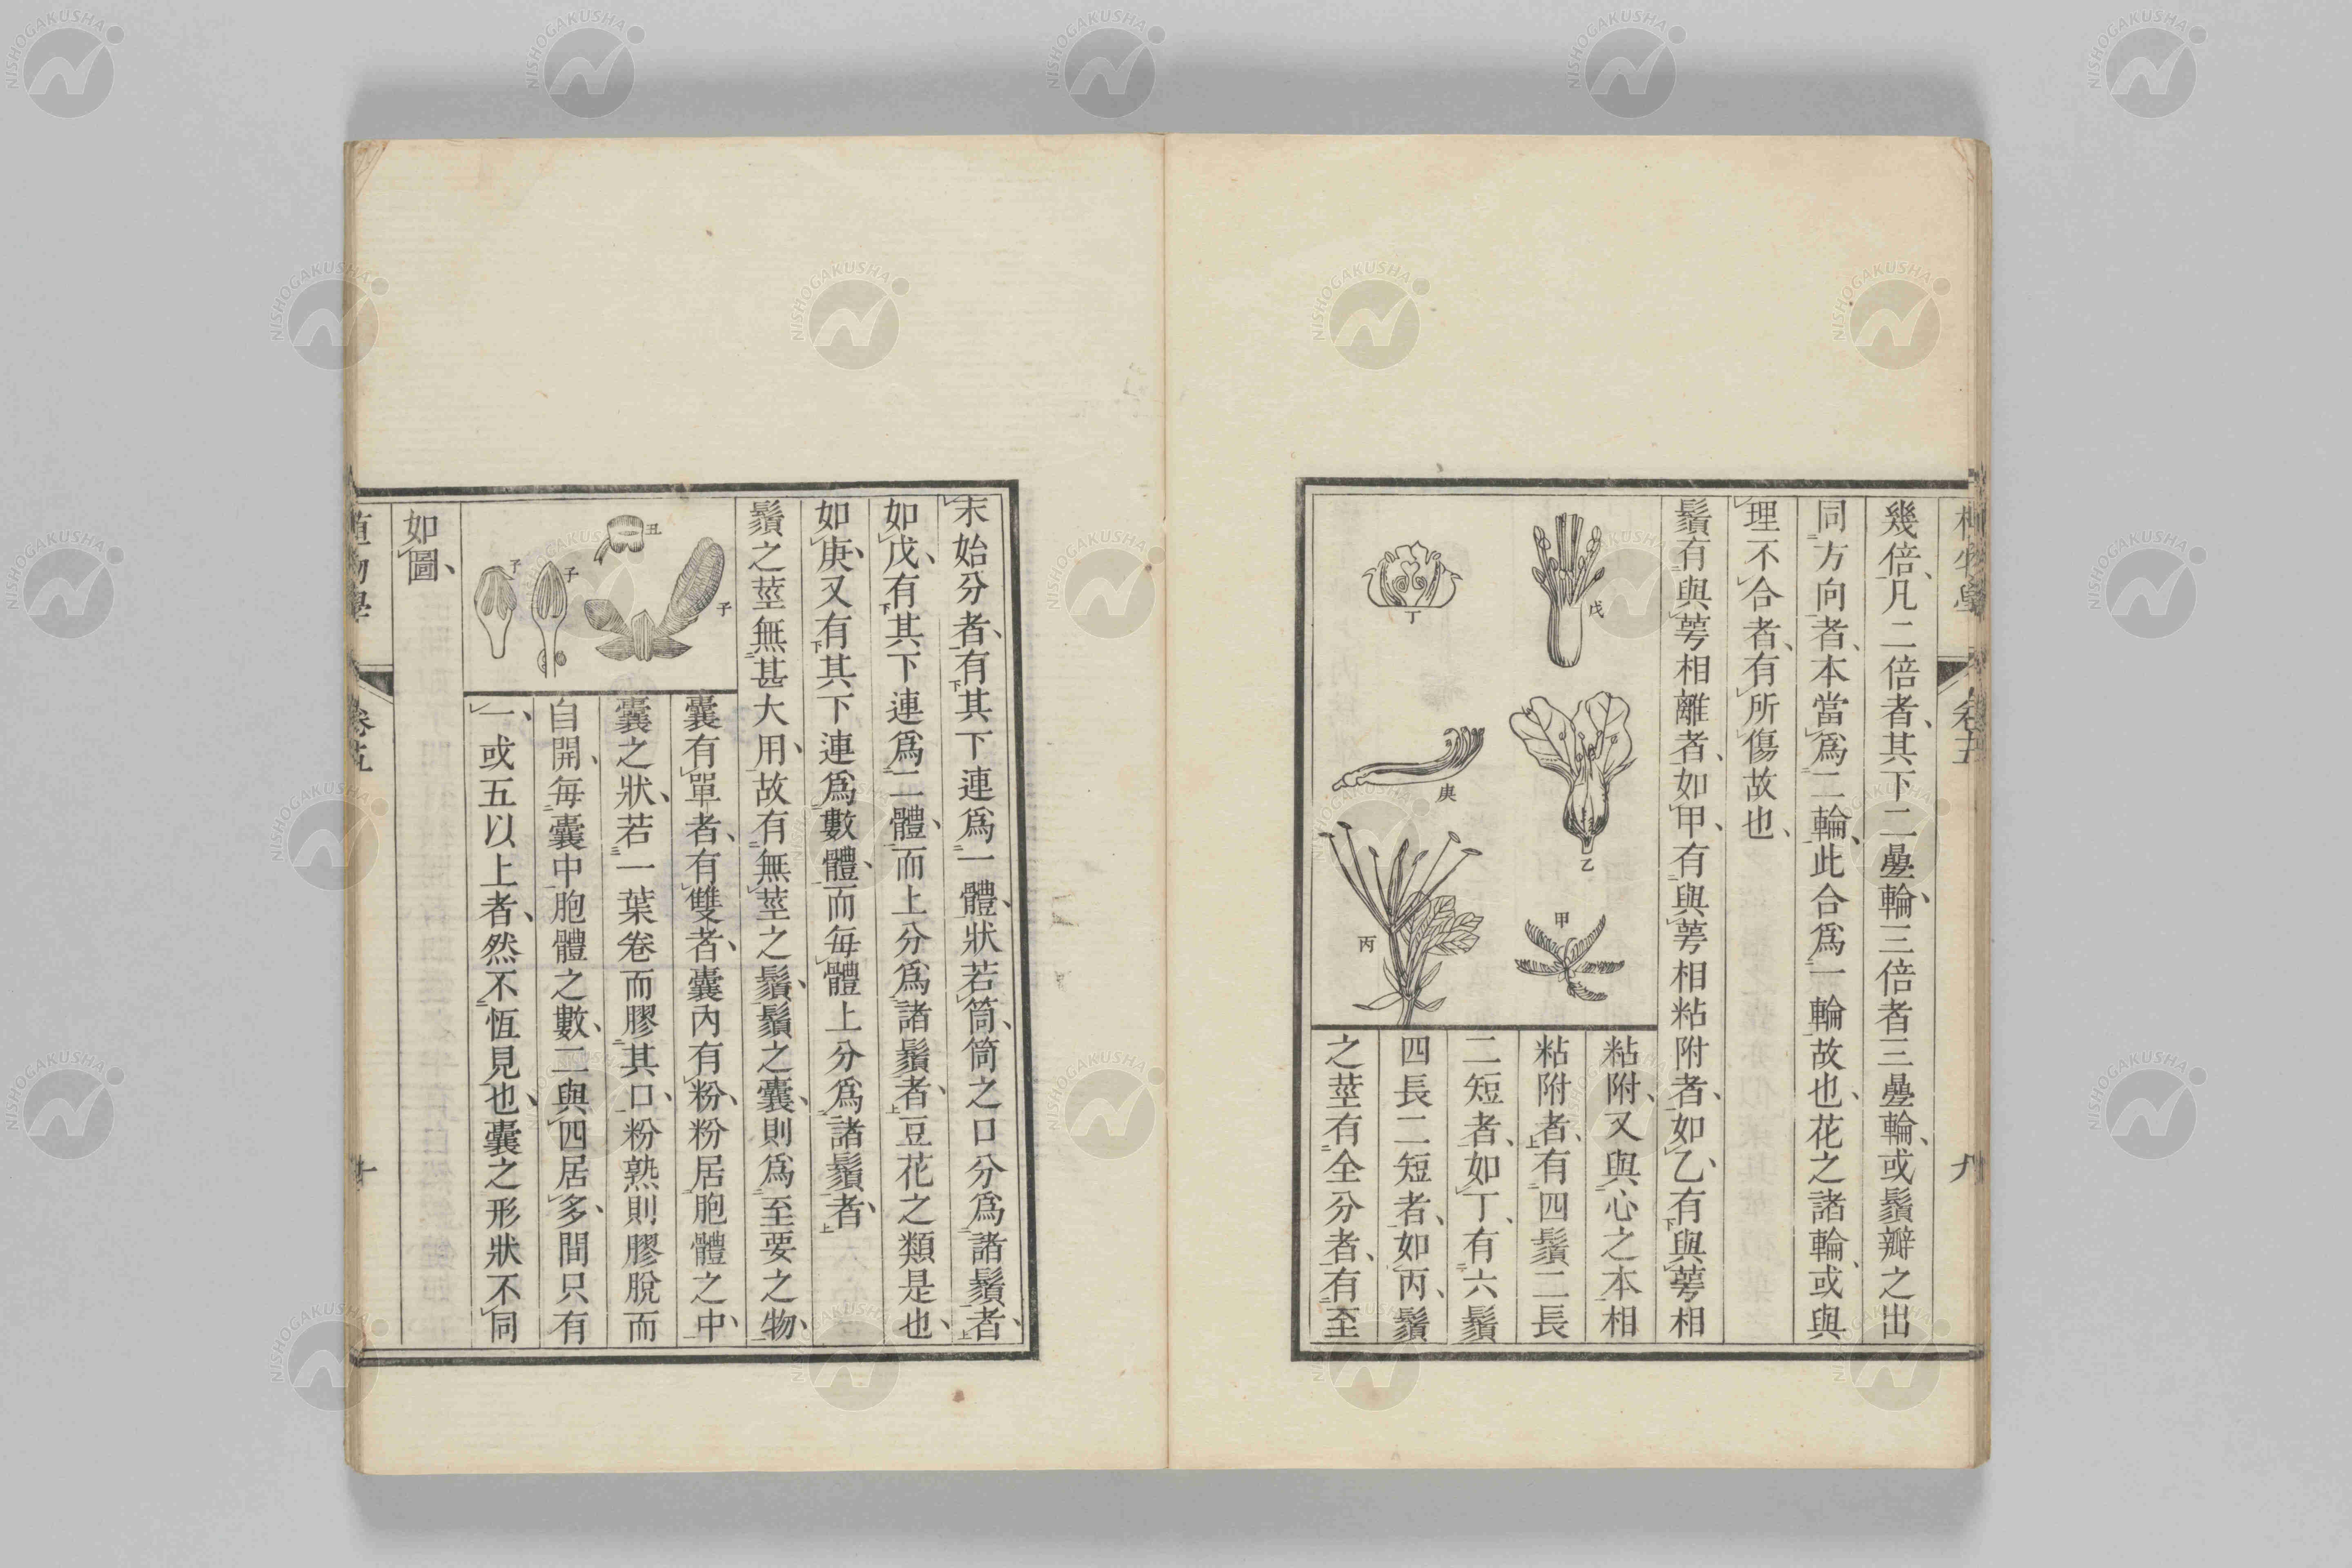 植物學
卷五
九
幾倍、凡二倍者、其下二疊輪、三倍者三疊輪、或鬚瓣之出
同方向者、本當爲二輪、此合爲一輪故也、花之諸輪、或與
理不合者、有所傷故也、
鬚有與萼相離者、如甲、有與萼相粘附者、如乙、有與萼相
粘附、又與心之本相
粘附者、有四鬚二長
二短者、如丁、有六鬚
四長二短者、如丙、鬚
之莖有全分者、有至
戊
丁
乙
庚
甲
丙
末始分者、有其下連爲一體、狀若筒、筒之口分爲諸鬚者、
如戊、有其下連爲二體、而上分爲諸鬚者、豆花之類是也、
如庚、又有其下連爲數體、而每體上分爲諸鬚者、
鬚之莖無甚大用、故有無莖之鬚、鬚之囊、則爲至要之物、
囊有單者、有雙者、囊內有粉、粉居胞體之中、
囊之狀、若一葉卷而膠其口、粉熟則膠脫而
自開、每囊中胞體之數、二與四居多、間只有
一、或五以上者、然不恆見也、囊之形狀不同
如圖、
丑
子
子
子
植物學
卷五
十
NISHOGAKUSHA